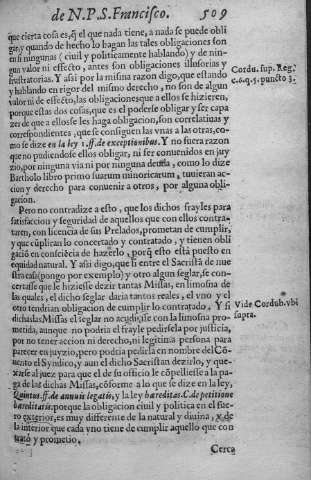 de N.P.S. Francisco. 509
que cierta cosa es, q̃ el que nada tiene, a nada se puede obli
gar, y quando de hecho lo hagan las tales obligaciones son
ningunas (ciuil y politicamente hablando) y de nin-
gun valor ni effecto, antes son obligaciones illusorias y
frustratorias. Y assi por la misma razon digo, que estando
y hablando en rigor del mismo derecho, no son de algun
valor ni de effecto, las obligaciones que a ellos se hizieren,
porque estas dos cosas, que es el poderse obligar y ser capa
zes de que a ellos se les haga obligacion, son correlatiuas y
correspondientes, que se consiguen las vnas a las otras, co-
mo se dize en la ley 1. ff. de exceptionibus. Y no fuera razon
que no pudiendose ellos obligar, ni ser conuenidos en juy
zio, por ninguna via ni por ninguna deuda, como lo dize
Bartholo libro primo suarum minoricarum, tuuieran ac-
cion y derecho para conuenir a otros, por alguna obli-
gacion.
Cordu. sup. Reg.
c. 6. q. 5. puncto 3.
Pero no contradize a esto, que los dichos frayles para
satisfacion y seguridad de aquellos que con ellos contra-
taren, con licencia de sus Prelados, prometan de cumplir,
y que cũpliran lo concertado y contratado, y tienen obli
gaciō en consciēcia de hazerlo, porq̃ esto està puesto en
equidad natural. Y assi digo, que si entre el Sacristã de nue
stra casa (pongo por exemplo) y otro algun seglar, se con-
certasse que le hiziesse dezir tantas Missas, en limosna de
las quales, el dicho seglar daria tantos reales, el vno y el
otro tendrian obligacion de cumplir lo contratado. Y si
dichas las Missas el seglar no acudiesse con la limosna pro
metida, aunque no podria el frayle pedirsela por justicia,
por no tener accion ni derecho, ni legitima persona para
parecer en juyzio, pero podria pedirla en nombre del Cō-
uento el Syndico, y aun el dicho Sacristan dezirlo, y que-
xarse al juez para que el de su officio le cōpelliesse a la pa-
ga de las dichas Missas, cōforme a lo que se dize en la ley,
Quintus. ff. de annuis legatis, y la ley hæreditas. C. de petitione
hæreditatis: porque la obligacion ciuil y politica en el fue-
ro exterior, es muy differente de la natural y diuina, y de
la interior que cada vno tiene de cumplir aquello que con
tratò y prometio.
Vide Cordub. vbi
supra.
Cerca